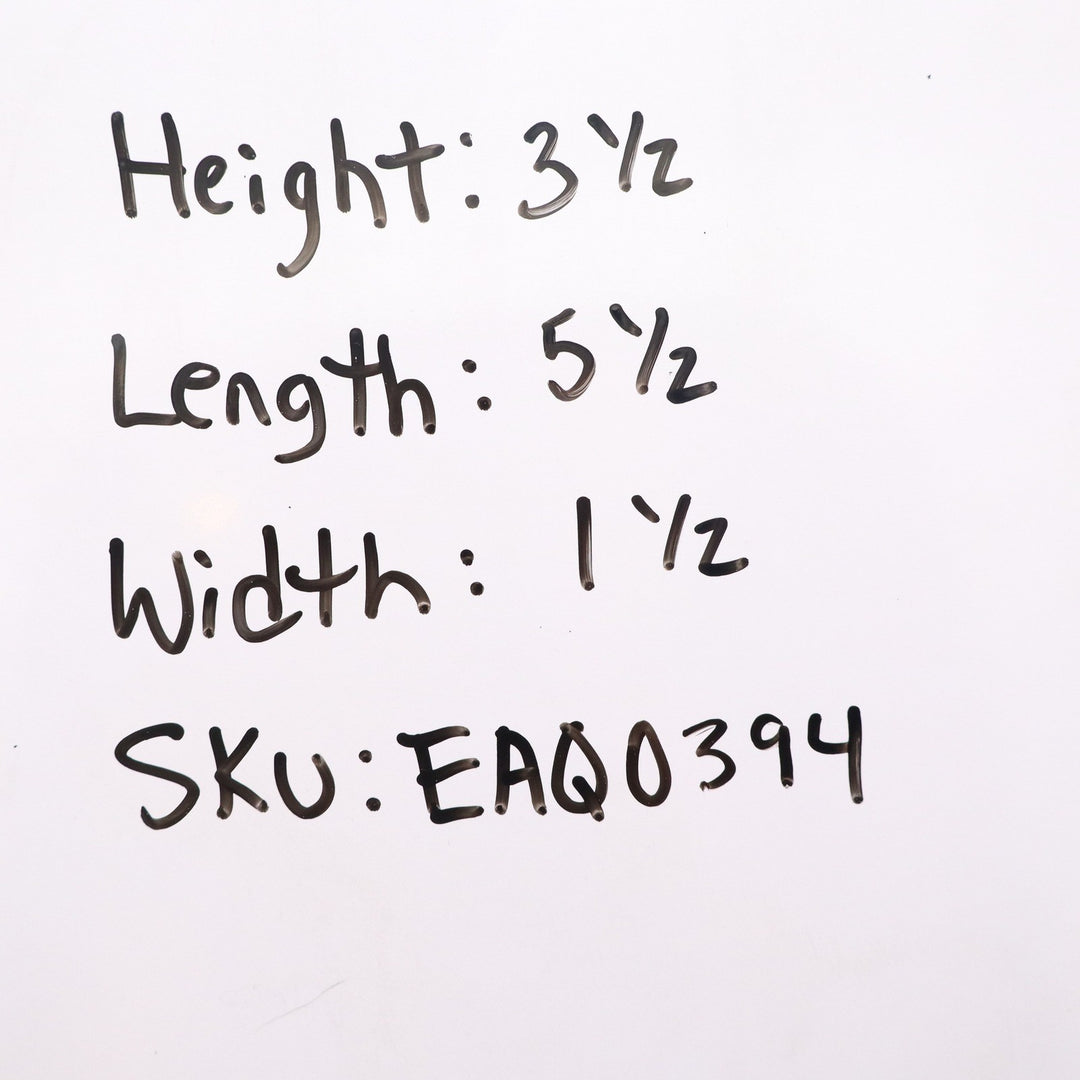 Height: 3 1/2
Length: 5 1/2
Width: 1 1/2
SKU: EAQ0394